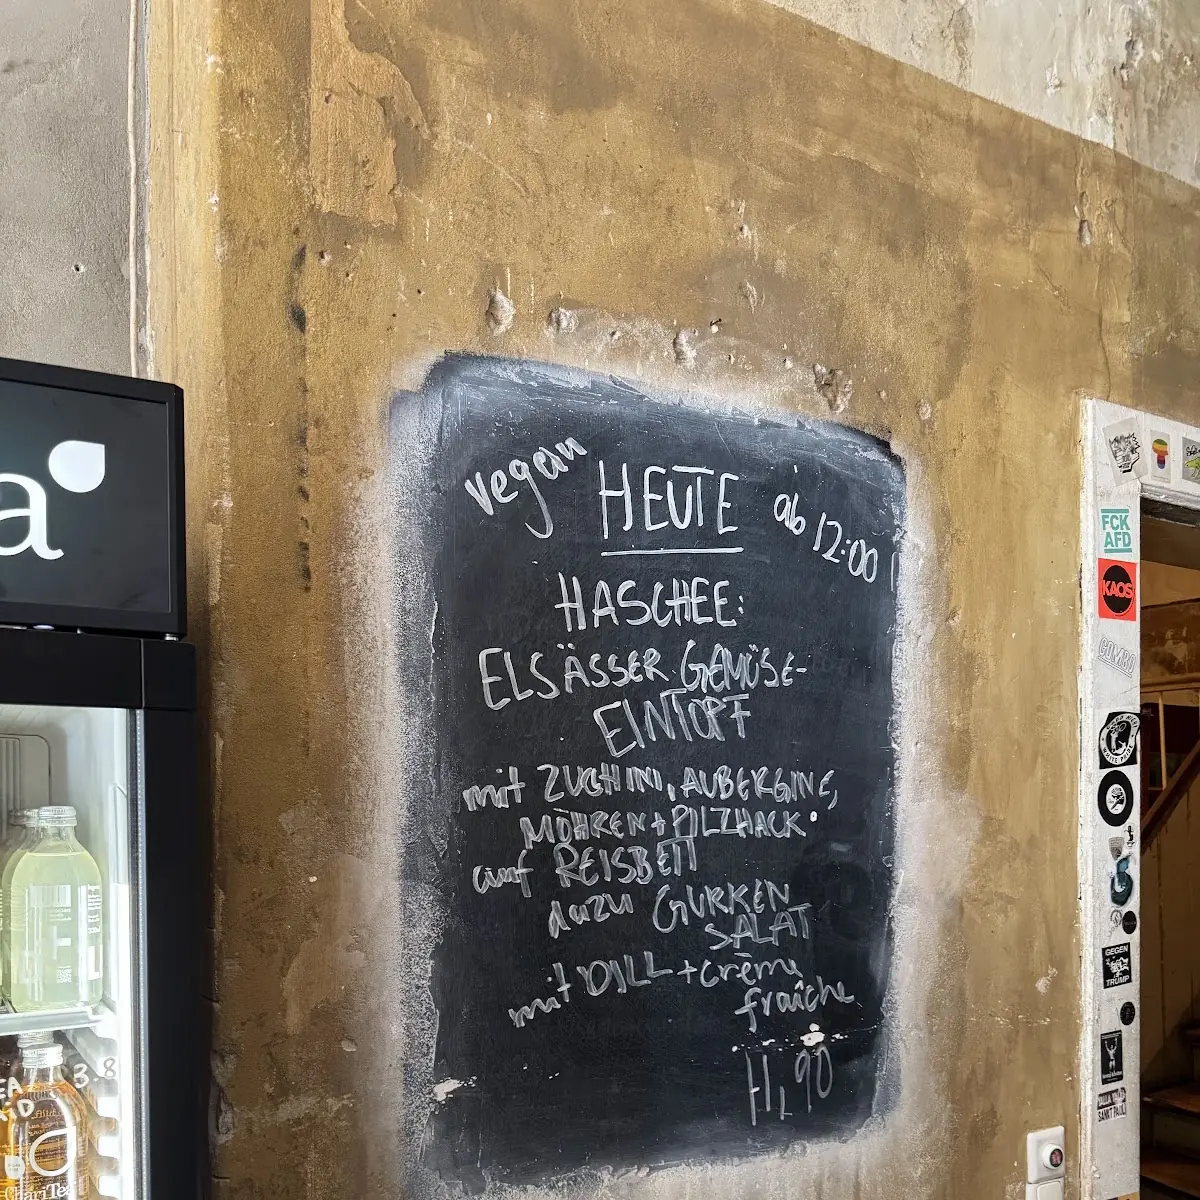 vegan HEUTE ab 12:00
HASCHEE:
ELSÄSSER GEMÜSE-
EINTOPF
mit ZUCHINI, AUBERGINE,
MÖHREN + PILZHACK
auf REISBETT
dazu GURKEN
SALAT
mit DILL + crème
fraîche
11,90
a
3.8
ChariTea
FCK
AFD
KAOS
COMBO
GEGEN
TRUMP
SANKT PAULI